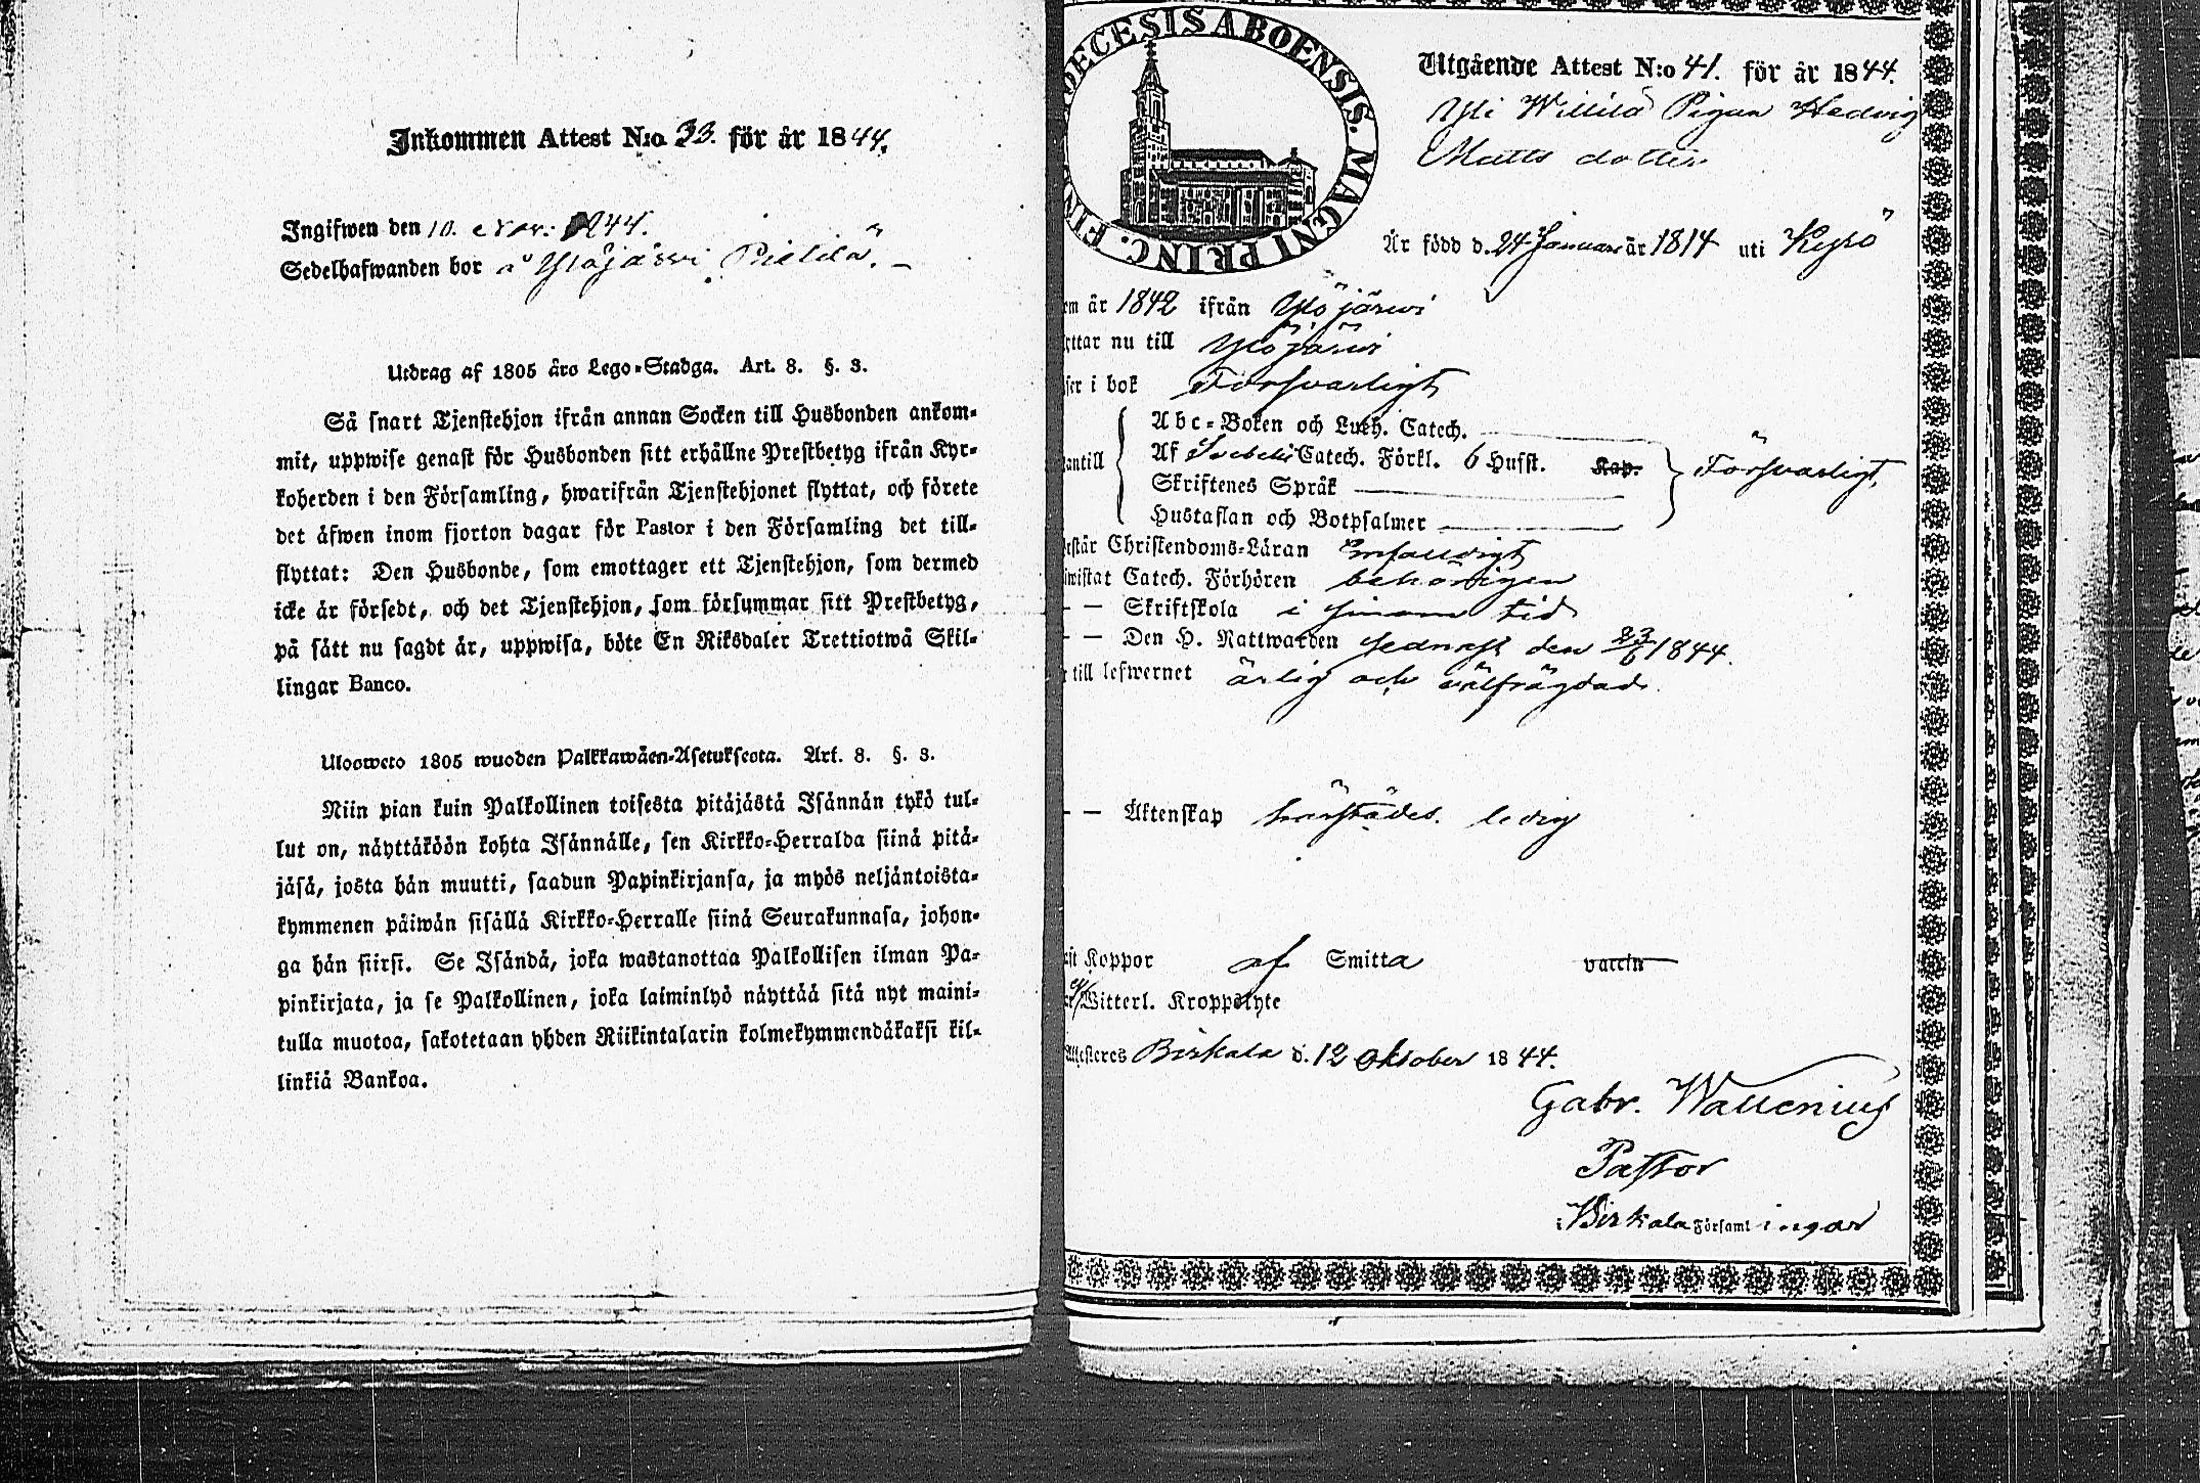 Inkommen Attest N:o 33. för år 1844.
Ingifwen den 10. Nov. 1844.
Sedelhafwanden bor å Ylöjärvi Pietilä. –
Utdrag af 1805 års Lego-Stadga. Art. 8. §. 3.
Så snart Tjenstehjon ifrån annan Socken till Husbonden ankom-
mit, uppwise genast för Husbonden sitt erhållne Prestbetyg ifrån Kyr-
koherden i den Församling, hwarifrån Tjenstehjonet flyttat, och förete
det äfwen inom fjorton dagar för Pastor i den Församling det till-
flyttat: Den Husbonde, som emottager ett Tjenstehjon, som dermed
icke är försedt, och det Tjenstehjon, som försummar sitt Prestbetyg,
på sätt nu sagdt är, uppwisa, böte En Riksdaler Trettiotwå Skil-
lingar Banco.
Uloswcto 1805 wuoden Palkkawäen-Asetuksesta. Art. 8. §. 3.
Niin pian kuin Palkollinen toisesta pitäjästä Isännän tykö tul-
lut on, näyttäköön kohta Isännälle, sen Kirkko-Herralda siinä pitä-
jäsä, josta hän muutti, saadun Papinkirjansa, ja myös neljäntoista-
kymmenen päiwän sisällä Kirkko-Herralle siinä Seurakunnasa, johon-
ga hän siirsi. Se Isändä, joka wastanottaa Palkollisen ilman Pa-
pinkirjata, ja se Palkollinen, joka laiminlyö näyttää sitä nyt maini-
tulla muotoa, sakotetaan yhden Riikintalarin kolmekymmendäkaksi kil-
linkiä Bankoa.
DECESIS ABOENSIS. MAGNI PRINC. FIN
Utgående Attest N:o 41. för år 1844.
Yli Willilä Pigan Hedvig
Matts dotter
Är född d. 24 Januari år 1814 uti Kyrö
em år 1842 ifrån Ylöjärvi
yttar nu till Ylöjärvi
ser i bok Försvarligt
Abc-Boken och Luth. Catech.
antill Af Svebelii Catech. Förkl. 6 Hufst. Kap. Försvarligt,
Skriftenes Språk
Hustaflan och Botpsalmer
estår Christendoms-Läran Enfaldigt
wistat Catech. Förhören behörigen
– – Skriftskola i sinom tid
– – Den H. Nattwarden sednast den 23/6 1844.
till lefwernet ärlig och välfrägdad.
– – Äktenskap härstädes. ledig
ft Koppor af Smitta vaccin
ej/Witterl. Kroppslyte
Attesteres Birkala d. 12 Oktober 1844.
Gabr. Wallenius
Pastor
i Birkala Församlingar